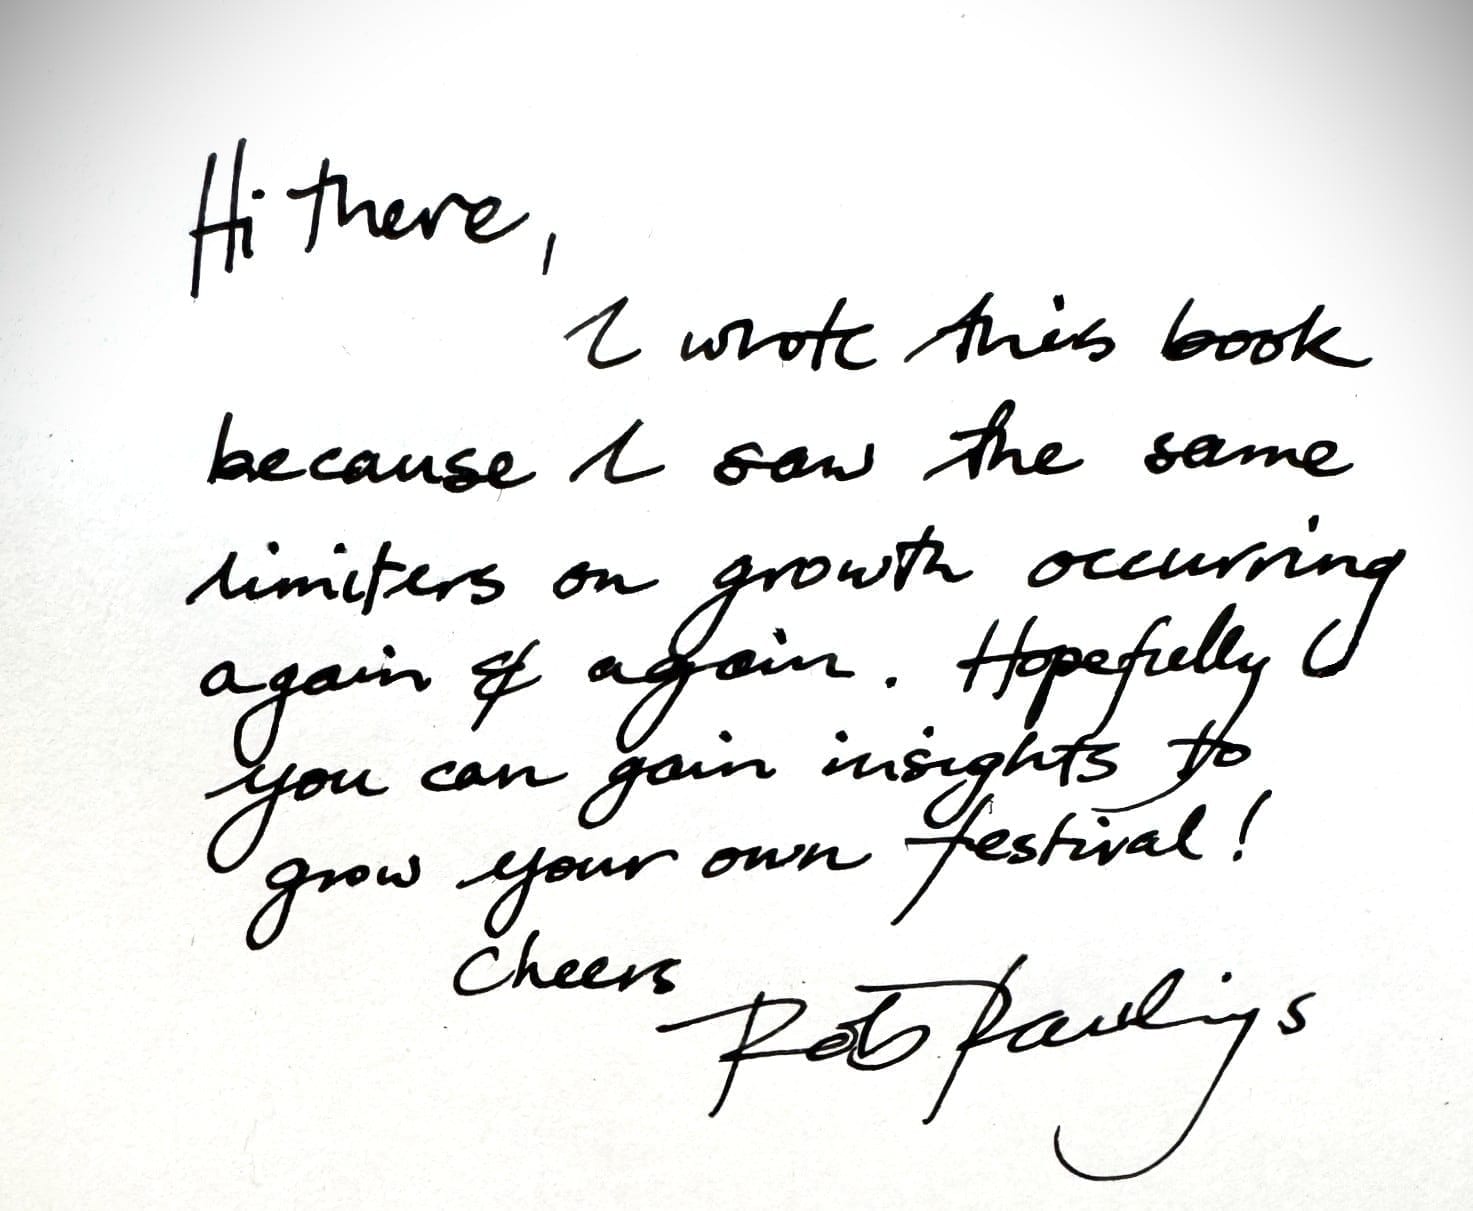 Hi there,
I wrote this book
because I saw the same
limiters on growth occurring
again & again. Hopefully
you can gain insights to
grow your own festival!
Cheers
Rob Rawlings